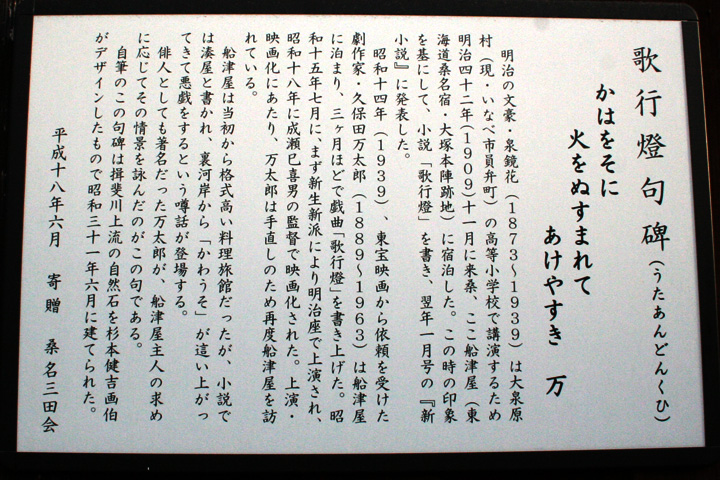 歌行燈句碑（うたあんどんくひ）
かはをそに
火をぬすまれて
あけやすき　万
明治の文豪・泉鏡花（1873～1939）は大泉原
村（現・いなべ市員弁町）の高等小学校で講演するため
明治四十二年(1909)十一月に来桑、ここ船津屋（東
海道桑名宿・大塚本陣跡地）に宿泊した。この時の印象
を基にして、小説「歌行燈」を書き、翌年一月号の『新
小説』に発表した。
昭和十四年（1939）、東宝映画から依頼を受けた
劇作家・久保田万太郎（1889～1963）は船津屋
に泊まり、三ヶ月ほどで戯曲「歌行燈」を書き上げた。昭
和十五年七月に、まず新生新派により明治座で上演され、
昭和十八年に成瀬巳喜男の監督で映画化された。上演・
映画化にあたり、万太郎は手直しのため再度船津屋を訪
れている。
船津屋は当初から格式高い料理旅館だったが、小説で
は湊屋と書かれ、裏河岸から「かわうそ」が這い上がっ
てきて悪戯をするという噂話が登場する。
俳人としても著名だった万太郎が、船津屋主人の求め
に応じてその情景を詠んだのがこの句である。
自筆のこの句碑は揖斐川上流の自然石を杉本健吉画伯
がデザインしたもので昭和三十一年六月に建てられた。
平成十八年六月　寄贈　桑名三田会